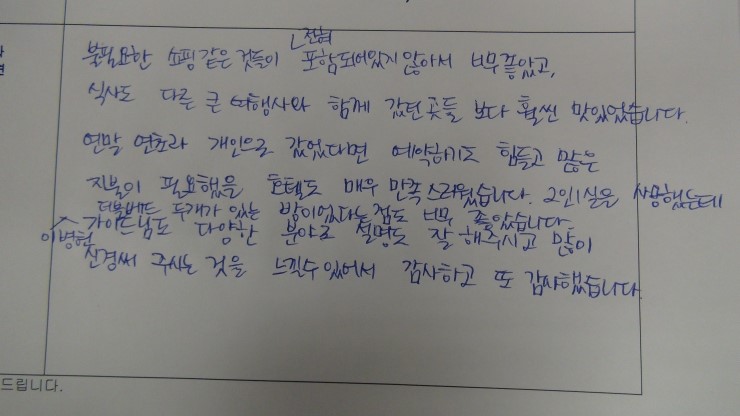 전혀
불필요한 쇼핑같은 것들이 포함되어있지 않아서 너무좋았고,
식사도 다른 큰 여행사와 함께 갔던곳들 보다 훨씬 맛있었습니다.
연말 연초라 개인으로 갔었다면 예약하기도 힘들고 많은
지불이 필요했을 호텔도 매우 만족스러웠습니다. 2인1실을 사용했는데
더블베드 두개가 있는 방이었다는점도 너무 좋았습니다.
이병헌 가이드님도 다양한 분야로 설명도 잘 해주시고 많이
신경써 주시는 것을 느낄수있어서 감사하고 또 감사했습니다
드립니다.